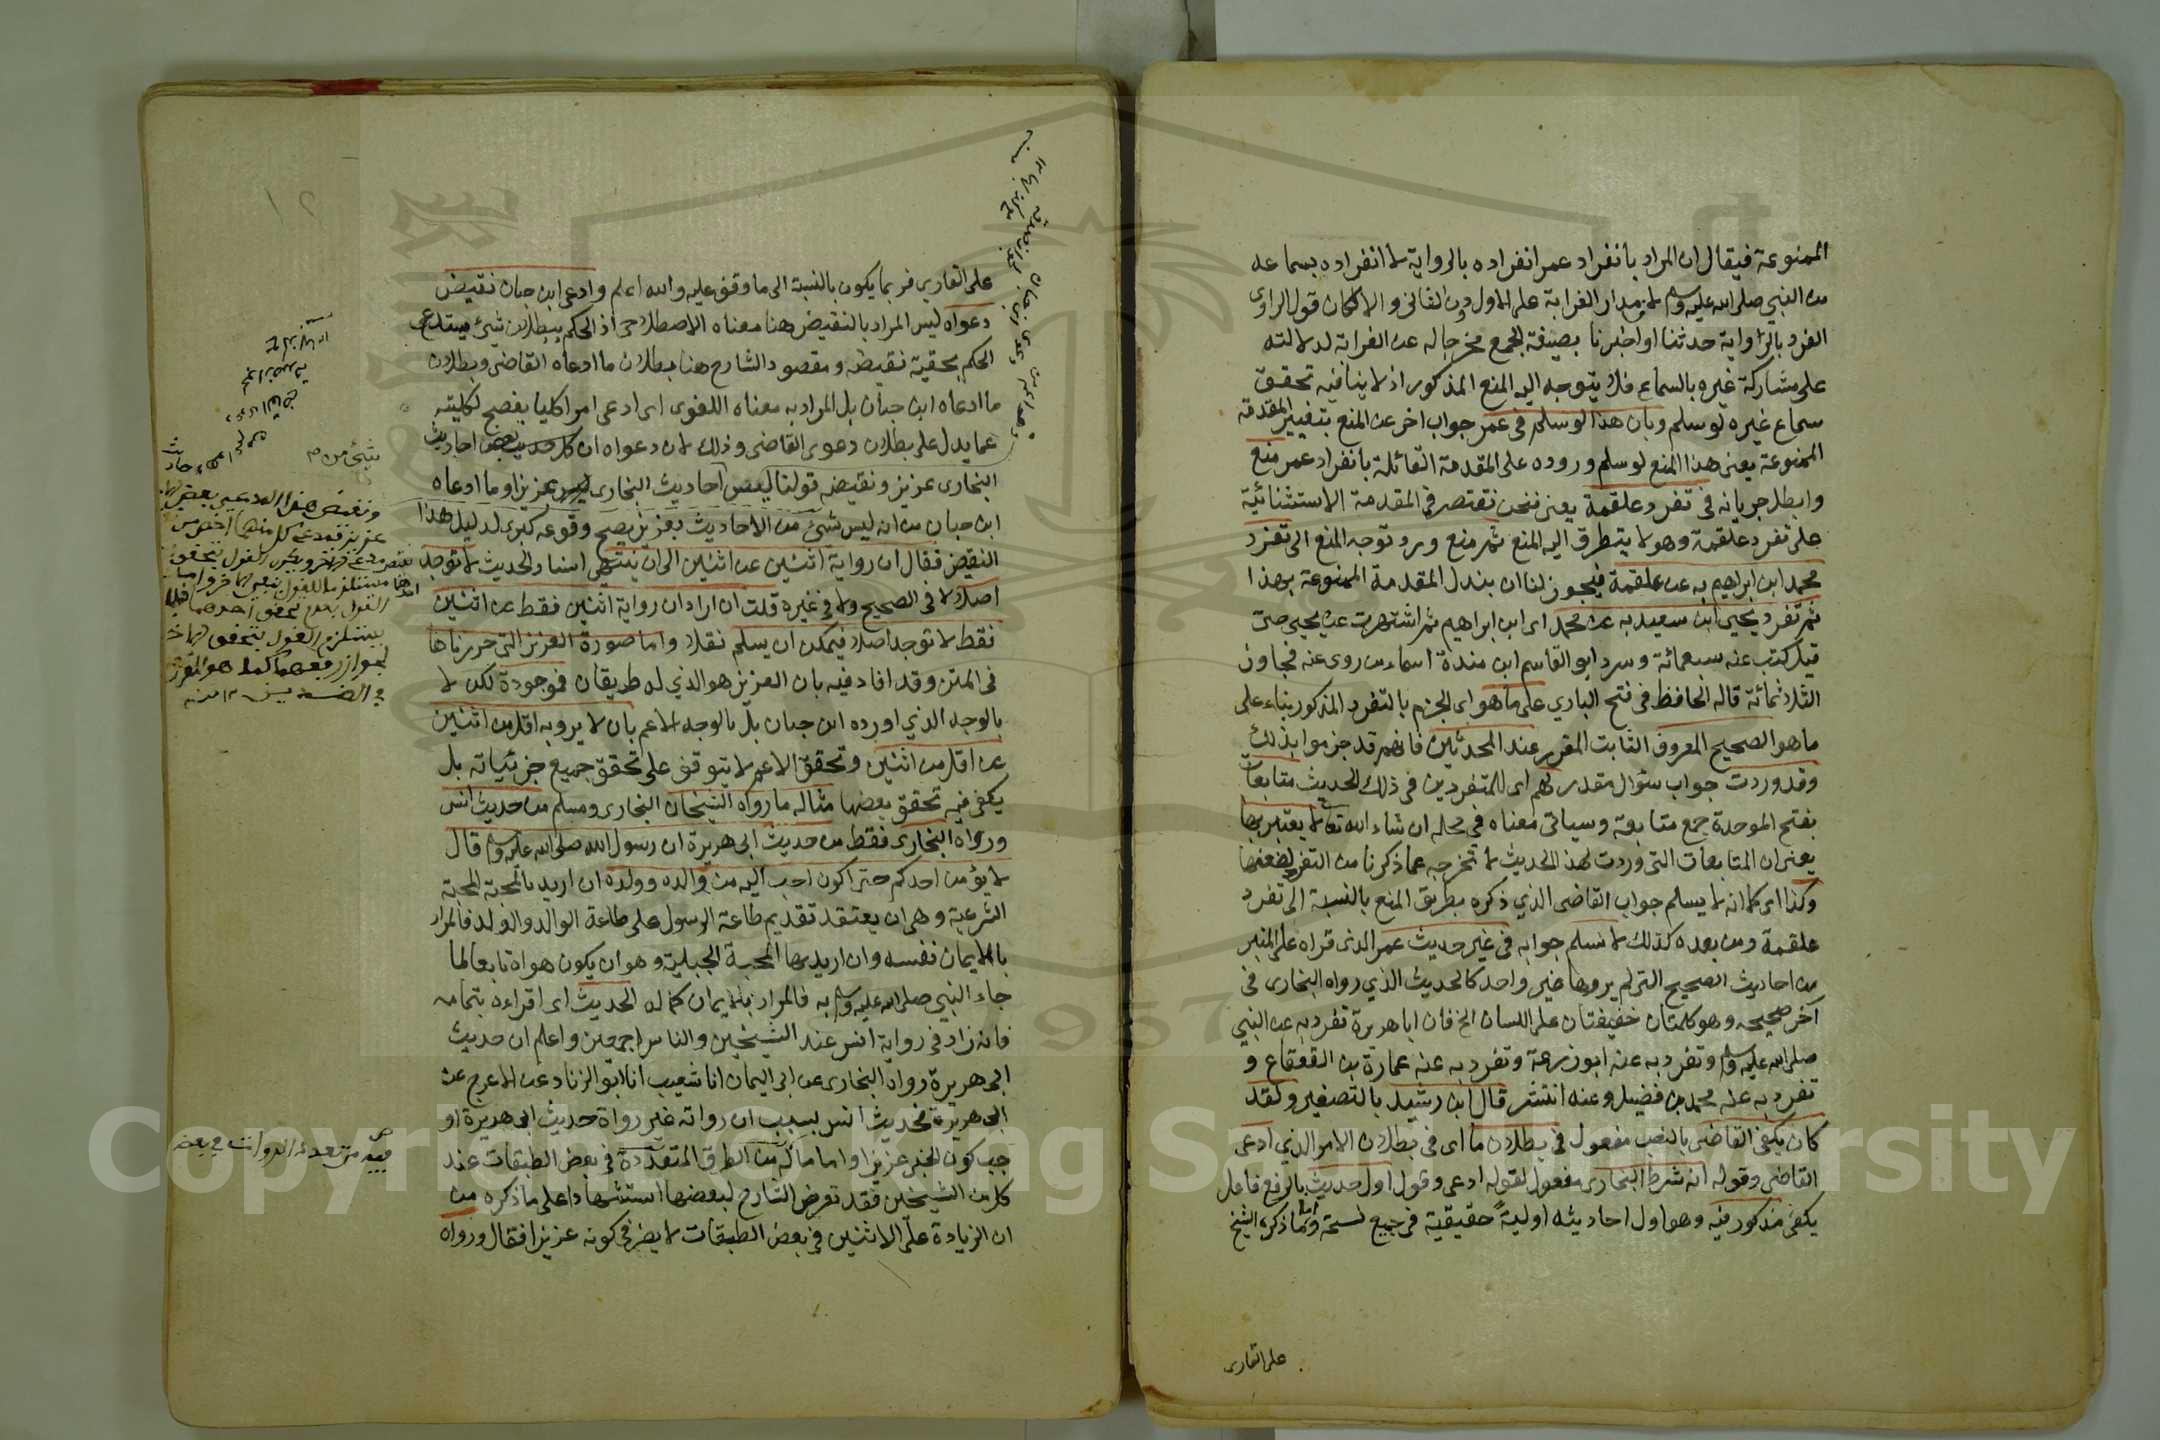 الممنوعة فيقال ان المراد بانفراد عمر انفراده بالرواية لا انفراده بسماعه
من النبي صلى الله عليه وسلم لان مدار الغرابة على الاول دون الثاني والا لكان قول الراوى
الفرد بالرواية حدثنا او اخبرنا بصيغة الجمع مخرجا له عن الغرابة لدلالته
على مشاركة غيره بالسماع فلا يتوجه اليه المنع المذكور اذ لا ينافيه تحقق
سماع غيره لو سلم وبان هذا لو سلم فى عمر جواب اخر عن المنع بتغيير المقدمة
الممنوعة يعنى هذا المنع لو سلم وروده على المقدمة القائلة بانفراد عمر منع
وابطل جريانه فى تفرد علقمة يعنى نحن نقتصر فى المقدمة الاستثنائية
على تفرد علقمة وهو لا يتطرق اليه المنع ثم منع ورد توجه المنع الى تفرد
محمد ابن ابراهيم به عن علقمة فيجوز لنا ان نبدل المقدمة الممنوعة بهذا
ثم تفرد يحيى ابن سعيد به عن محمد اى ابن ابراهيم ثم اشتهرت عن يحيى حتى
قيل كتب عنه سبعمائة وسرد ابو القاسم ابن مندة اسماء من روى عنه فجاوز
الثلاثمائة قاله الحافظ فى فتح الباري على ما هو اى الجزم بالتفرد المذكور بناء على
ما هو الصحيح المعروف الثابت المقرر عند المحدثين فانهم قد جزموا بذلك
وقد وردت جواب سئوال مقدر لهم اى للمتفردين فى ذلك الحديث متابعات
بفتح الموحدة جمع متابعة وسياتى معناه فى محله ان شاء الله تعالى لا يعتبر بها
يعنى ان المتابعات التى وردت لهذا الحديث لا تخرجه عما ذكرنا من التفرد لضعفها
وكذا اى كما انه لا يسلم جواب القاضى الذي ذكره بطريق المنع بالنسبة الى تفرد
علقمة ومن بعده كذلك لا نسلم جوابه فى غير حديث عمر الذى قراه على المنبر
من احاديث الصحيح التى لم يروها غير واحد كالحديث الذي رواه البخارى فى
آخر صحيحه وهو كلمتان خفيفتان على اللسان الخ فان ابا هريرة تفرد به عن النبي
صلى الله عليه وسلم وتفرد به عنه ابو زرعة وتفرد به عنه عمارة بن القعقاع و
تفرد به عنه محمد بن فضيل وعنه انتشر قال ابن رشيد بالتصغير ولقد
كان يكفى القاضى بالنصب مفعول فى بطلان ما اى فى بطلان الامر الذي ادعى
القاضى وقوله انه شرط البخارى مفعول لقوله ادعى وقول اول حديث بالرفع فاعل
يكفى مذكور فيه وهو اول احاديثه اولية حقيقية فى جميع نسخه وما ذكره الشيخ
على القارى
على القارى فربما يكون بالنسبة الى ما وقف عليه والله اعلم وادعى ابن حبان نقيض
دعواه ليس المراد بالنقيض هنا معناه الاصطلاحى اذ الحكم ببطلان شيئ يستدعى
الحكم بحقية نقيضه ومقصود الشارح هنا بطلان ما ادعاه القاضى وبطلان
ما ادعاه ابن حبان بل المراد به معناه اللغوى اى ادعى امرا كليا يفصح لكليته
عما يدل على بطلان دعوى القاضى وذلك لان دعواه ان كل حديث احاديث
البخارى عزيز ونقيضه قولنا لبعض احاديث البخارى ليس عزيزا وما ادعاه
ابن حبان من انه ليس شيئ من الاحاديث بعزيز يصح وقوعه كبرى لدليل هذا
النقيض فقال ان رواية اثنين عن اثنين الى ان ينتهى اسناد الحديث لا توجد
اصلا لا فى الصحيح ولا فى غيره قلت ان اراد ان رواية اثنين فقط عن اثنين
فقط لا توجد اصلا فيمكن ان يسلم نقلا واما صورة العزيز التى حررناها
فى المتن وقد افاد فيه بان العزيز هو الذي له طريقان فموجودة لكن لا
بالوجه الذي اورده ابن حبان بل بالوجه الاعم بان لا يرويه اقل من اثنين
عن اقل من اثنين وتحقق الاعم لا يتوقف على تحقق جميع جزئياته بل
يكفى فيه تحقق بعضها مثاله ما رواه الشيخان البخارى ومسلم من حديث انس
ورواه البخارى فقط من حديث ابى هريرة ان رسول الله صلى الله عليه وسلم قال
لا يؤمن احدكم حتى اكون احب اليه من والده وولده ان اريد بالمحبة المحبة
الشرعية وهى ان يعتقد تقديم طاعة الرسول على طاعة الوالد والولد فالمراد
بالايمان نفسه وان اريد بها المحبة الجبلية وهو ان يكون هواه تابعا لما
جاء النبي صلى الله عليه وسلم به فالمراد بالايمان كماله الحديث اى اقراءه بتمامه
فانه زاد فى رواية انس عند الشيخين والناس اجمعين واعلم ان حديث
ابى هريرة رواه البخارى عن ابى اليمان انا شعيب انا ابو الزناد عن الاعرج عن
ابى هريرة فحديث انس بسبب ان رواته غير رواة حديث ابى هريرة او
جب كون الخبر عزيزا واما ماله من الطرق المتعددة فى بعض الطبقات عند
كل من الشيخين فقد تعرض الشارح لبعضها استشهادا على ما ذكره من
ان الزيادة على الاثنين فى بعض الطبقات لا يضر فى كونه عزيزا فقال ورواه
بشئ من